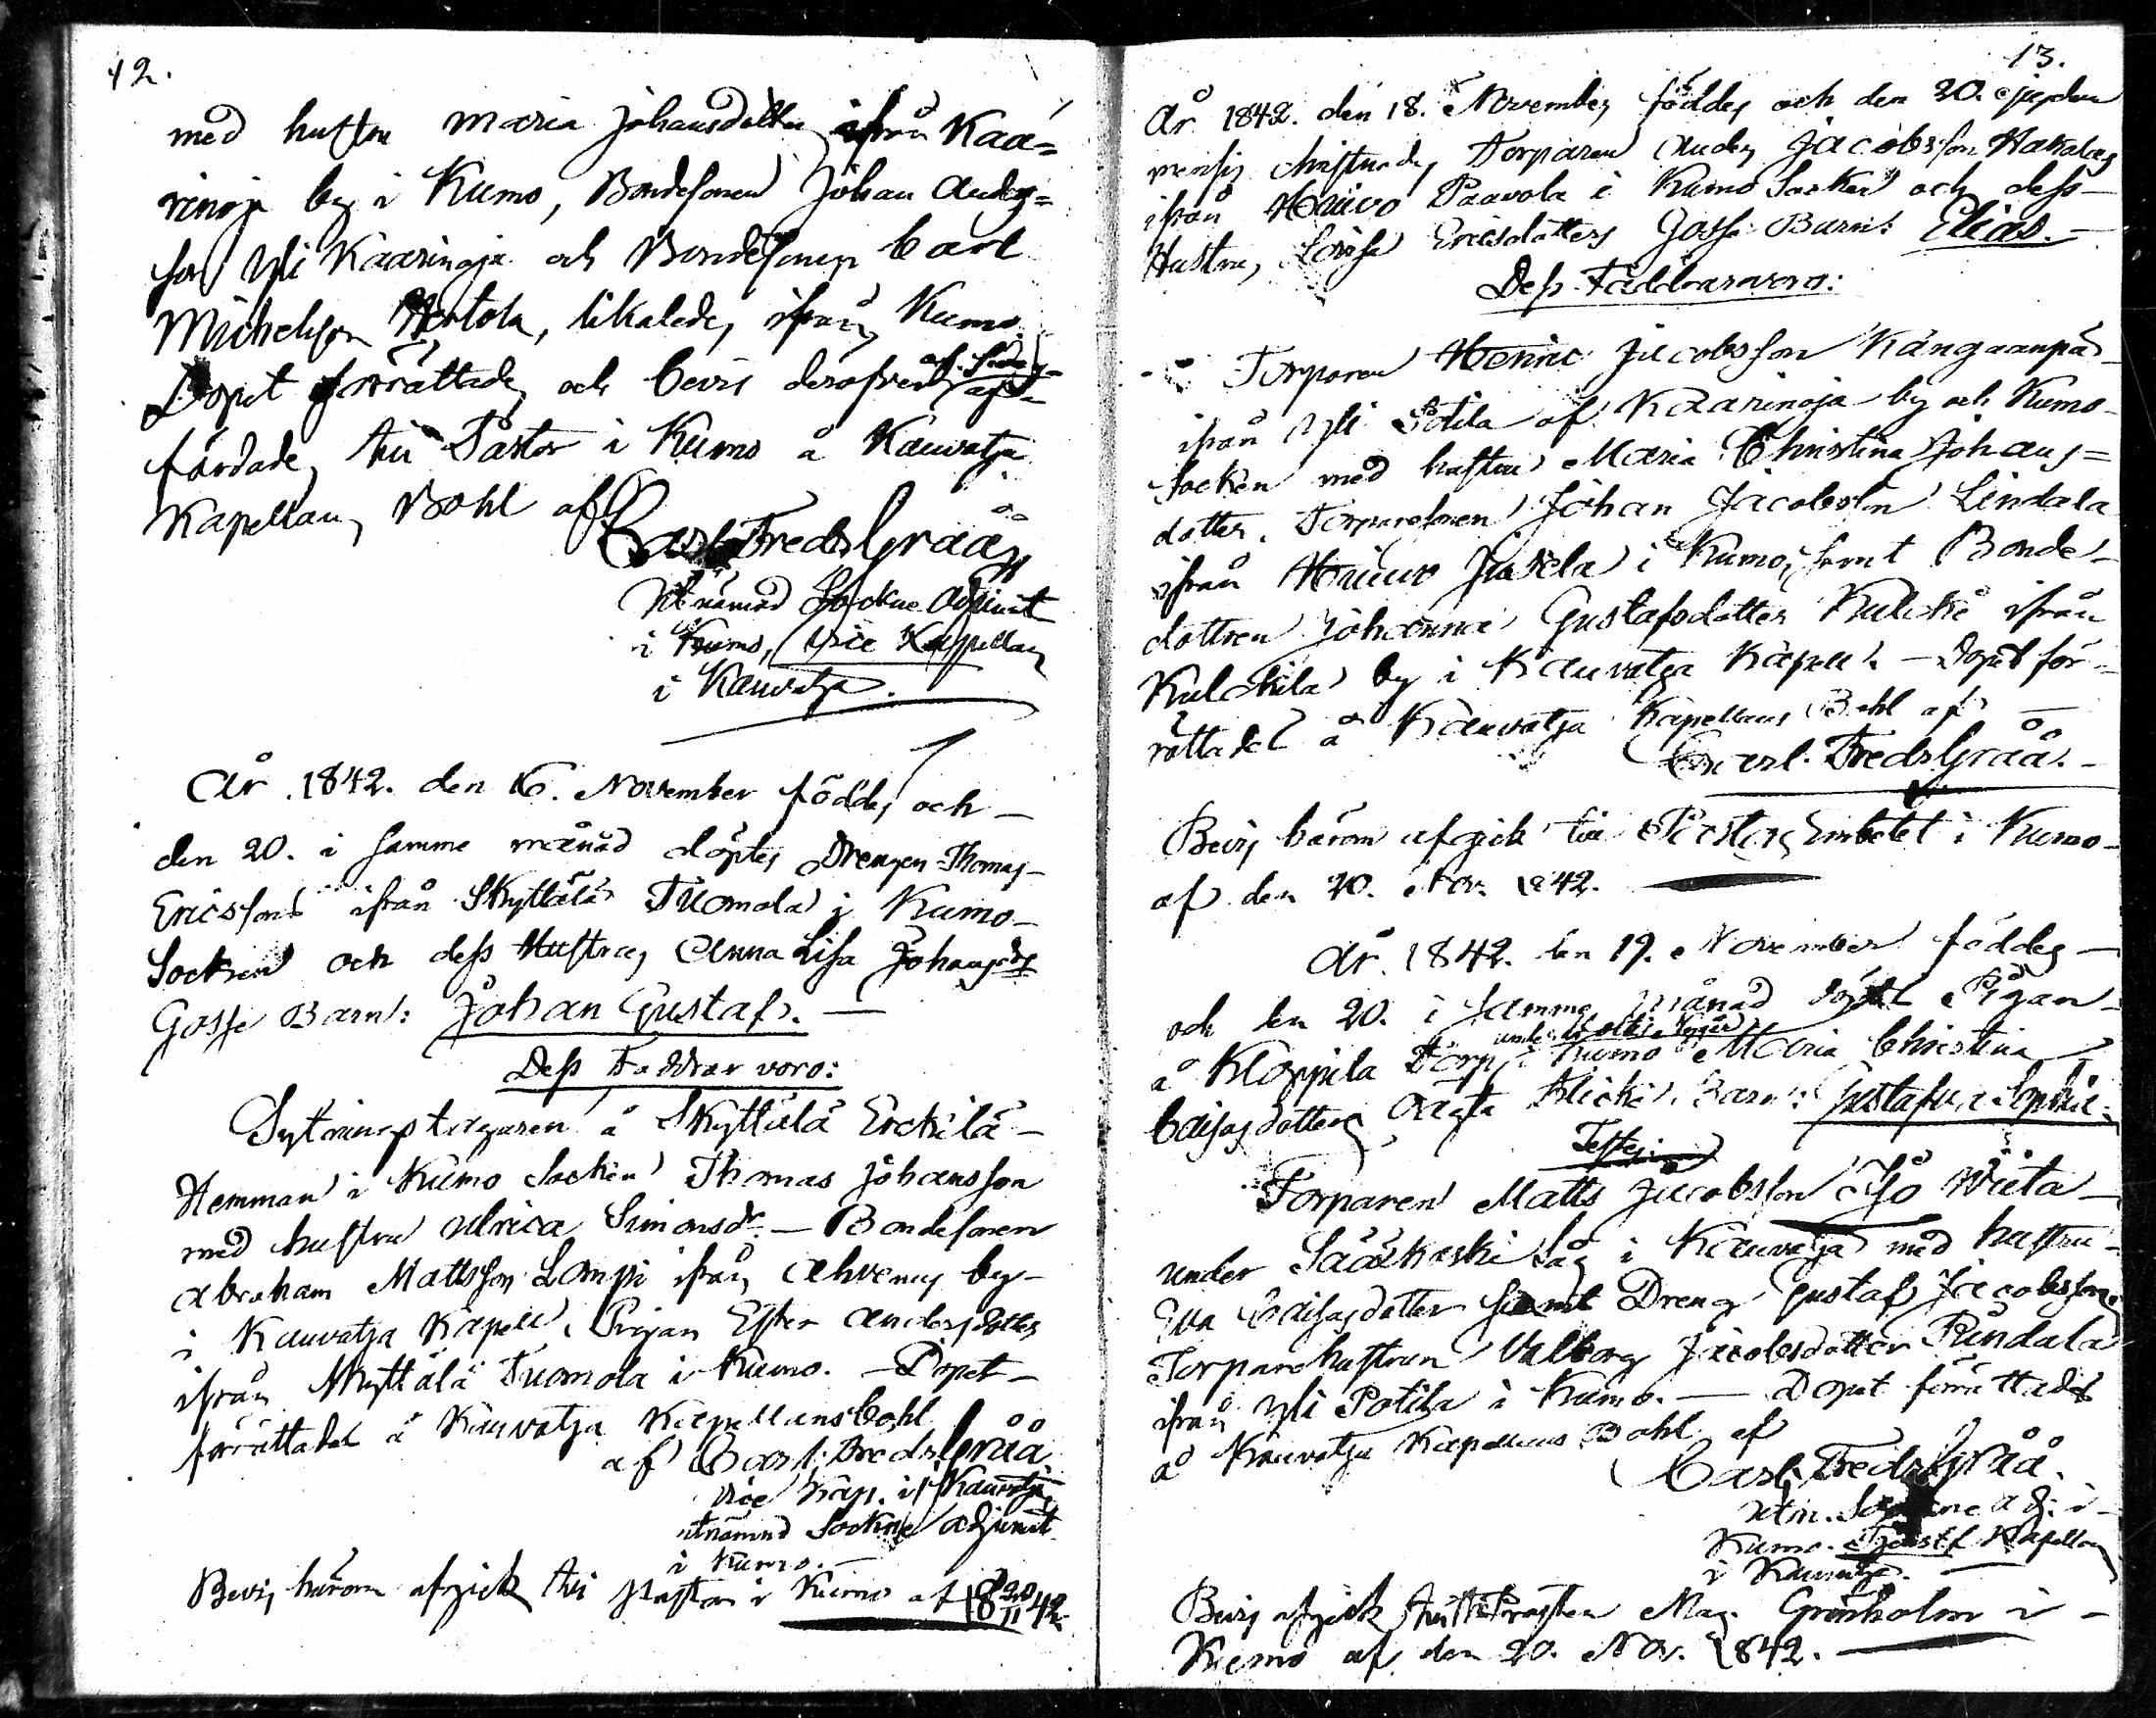 12.
med hustru Maria Johansdotter ifrån Kaa=
rinoja by i Kumo, Bondesonen Johan Anders=
son Yli Kaarinoja och Bondesonen Carl
Michelsson Hertola, likaledes ifrån Kumo
Dopet förrättades och bevis deröfver af-
färdades till Pastor i Kumo å Kauvatsa
Kapellans Bohl af
Carl Fredr Gråå
Utnämnd Sockne Adjunct
i Kumo, Vice Kapellan
i Kauvatsa.
År 1842. den 16. November föddes och
den 20. i samme månad döptes Drengen Thomas
Ericssons ifrån Skyttälä Tuomola i Kumo
Socken och dess Hustrus Anna Lisa Johansdr
Gosse Barn: Johan Gustaf.
Dess Faddrar voro:
Sytningstagaren å Skyttälä Erckilä
Hemman i Kumo Socken Thomas Johansson
med hustru Ulrica Simonsdr. - Bondesonen
Abraham Mattsson Lampi ifrån Ahvenus by
i Kauvatsa Kapell, Pigan Ester Andersdotter
ifrån Skyttälä Tuomola i Kumo. - Dopet
förrättadt å Kauvatsa Kapellansbohl
af Carl Fredr Gråå
Vice Kap. i Kauvatsa,
utnämnd Sockne Adjunct
i Kumo.
Bevis härom afgick till Pastor i Kumo af 18 20/11 42
13.
År 1842. den 18. November föddes och den 20. ejusdem
mensis christnades Torparen Anders Jacobsson Hakalas
ifrån Haivo Paavola i Kumo Socken och dess
Hustrus, Lovisa Ericsdotters Gosse Barn: Elias.
Dess Faddrar voro:
Torparen Henric Jacobsson Kangaanpä
ifrån Yli Potila af Kaarinoja by och Kumo
Socken med hustru Maria Christina Johans=
dotter. Torparesonen Johan Jacobsson Lindala
ifrån Haivo Jussila i Kumo, samt Bonde
dottren Johanna Gustafsdotter Kulcke ifrån
Kulckila by i Kauvatsa Kapell. - Dopet för
rättadt å Kauvatsa Kapellans Bohl af
Carl Fredr Gråå.
Bevis härom afgick till Pastors Embetet i Kumo
af den 20. Nov. 1842.
År 1842. den 19. November föddes
och den 20. i samme månad döptes Pigan
å Kloppila Torp i Kumo Maria Christina
Caisasdotters oägta Flicke Barn: Gustafva Sophia.
Testes:
Torparen Matts Jacobsson Iso Wiita
under Sääskoski Såg i Kauvatsa med hustru
Eva Caisasdotter samt Dreng Gustaf Jacobsson
Torparehustrun Valborg Jacobsdotter Rundala
ifrån Yli Potila i Kumo. - Dopet förrättadt
å Kauvatsa Kapellans Bohl af
Carl Fredr Gråå.
Utn. Sockne Adj. i
Kumo. Tjenstf Kapellan
i Kauvatsa.
Bevis afgick till Prosten Mag. Grönholm i
Kumo af den 20. Nov. 1842.